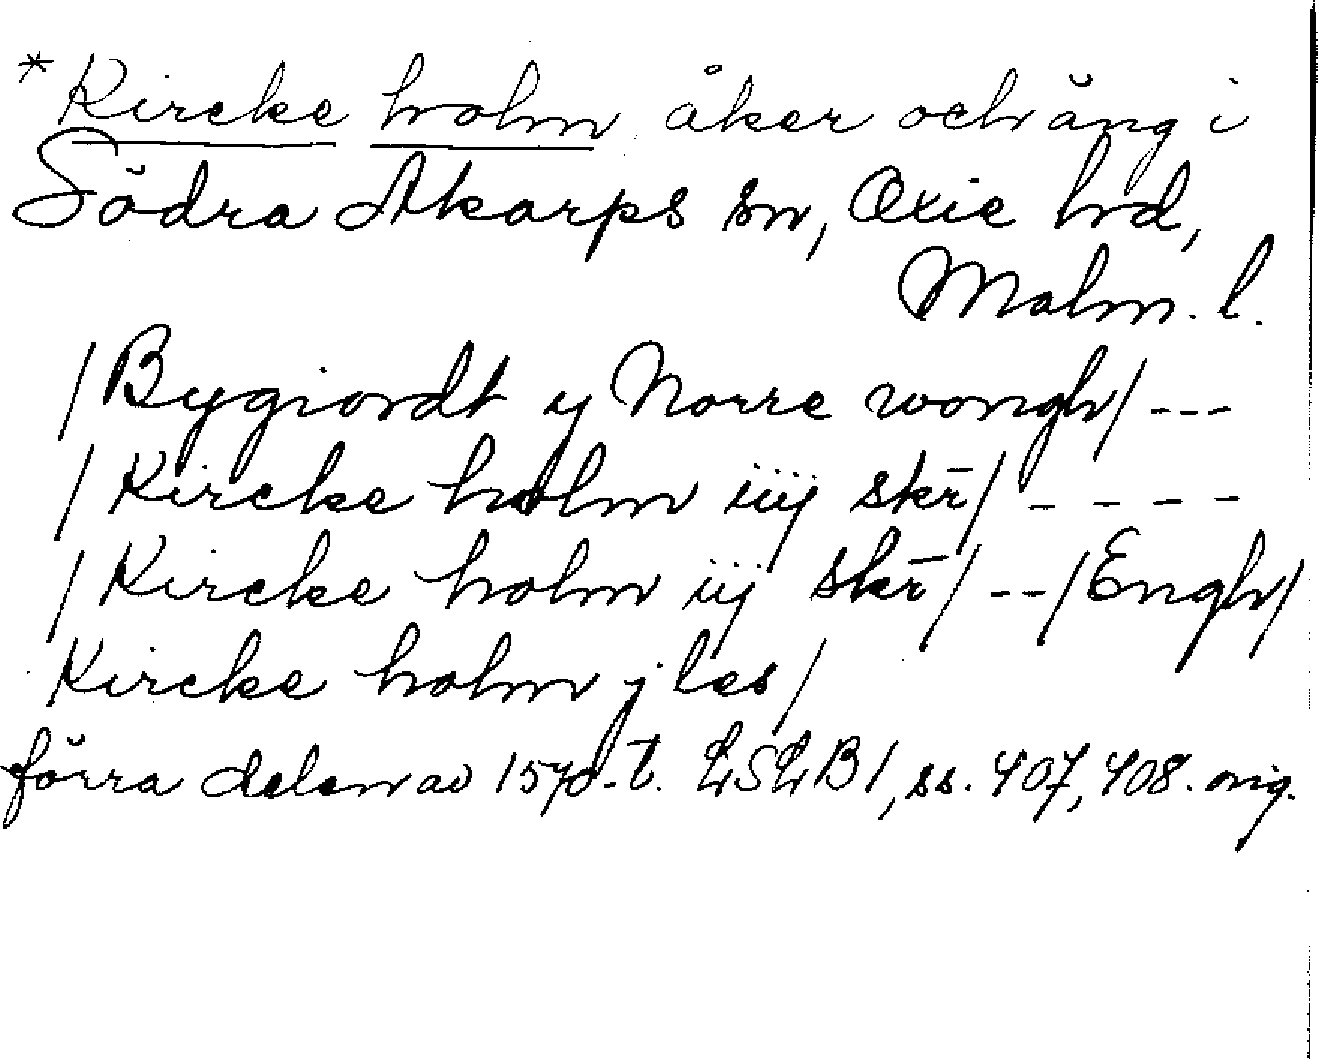 *Kircke holm åker och äng i
Södra Åkarps sn, Oxie hd,
Malm. l.
/Bygiordt y Norre wongh/ ---
/Kircke holm iiij skr̄/ ----
/Kircke holm iij skr̄/ --/Engh/
Kircke holm j les/
förra delen av 1570-t. LSLB1, ss. 407, 408. orig.